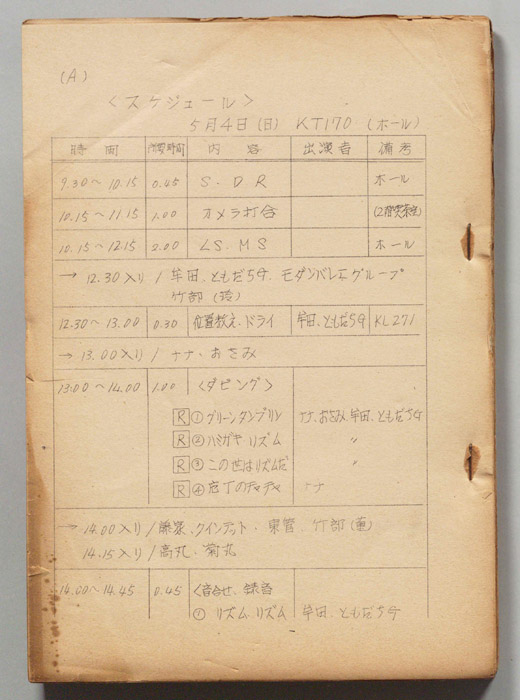 (A)
〈スケジュール〉
5月4日(日) KT170 (ホール)
時間 所要時間 内容 出演者 備考
9.30〜10.15 0.45 S.DR ホール
10.15〜11.15 1.00 オメラ打合 (2階喫茶室)
10.15〜12.15 2.00 LS.MS ホール
→ 12.30入り / 牟田、ともだち5、モダンバレエグループ
竹部 (蓮)
12.30〜13.00 0.30 位置教え.ドライ 牟田、ともだち5 KL271
→ 13.00入り / ナナ・おさみ
13.00〜14.00 1.00 〈ダビング〉
R ① グリーンタンブリン ナナ、おさみ、牟田、ともだち5
R ② ハミガキ リズム 〃
R ③ この世はリズムだ 〃
R ④ 庖丁のチャチャ ナナ
→ 14.00入り / クインテット、東管 竹部(蓮)
14.15入り / 高丸、菊丸
14.00〜14.45 0.45 〈音合せ、録音
① リズム.リズム 牟田、ともだち5